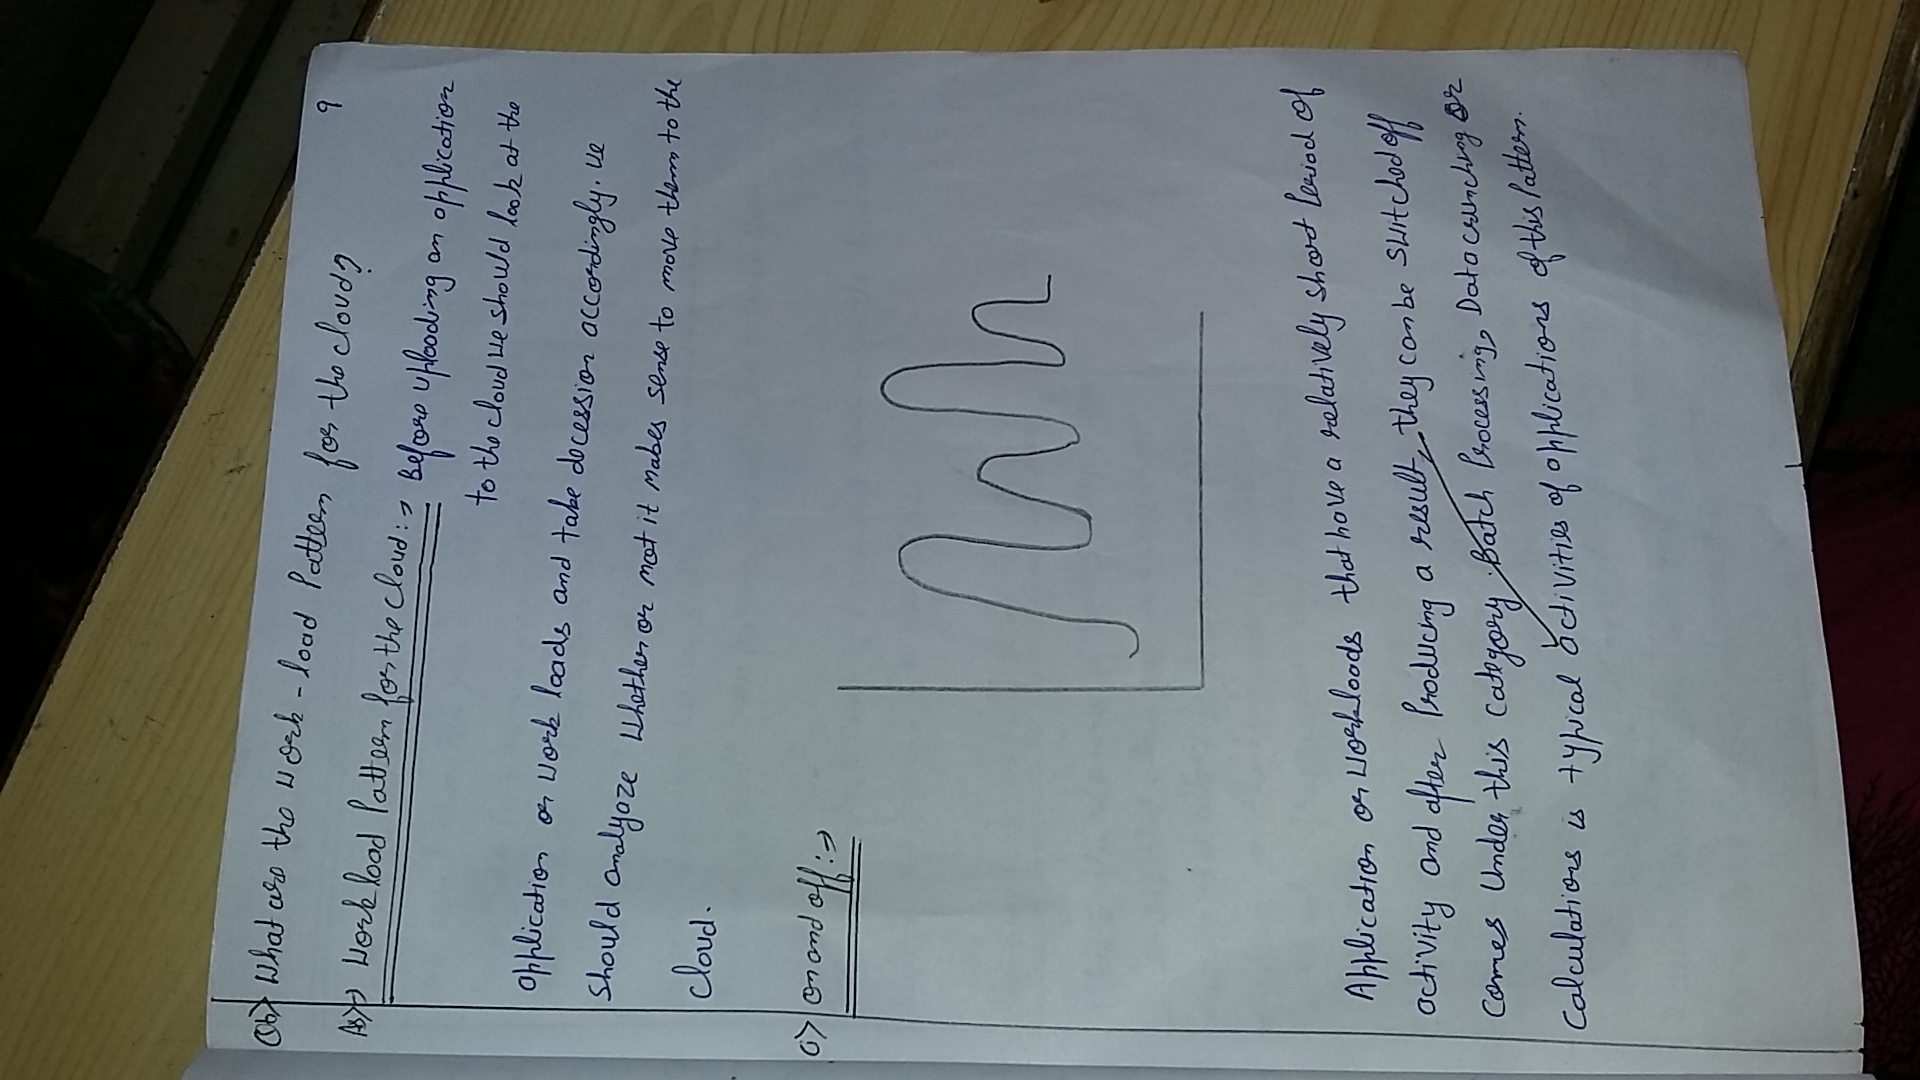 Q6> What are the work-load Pattern for the cloud?
9
As>→ Workload Pattern for the Cloud:→ Before uplooding an application
to the cloud we should look at the
application or work loads and take decession accordingly. we
should analyaze Whether or not it makes sense to move them to the
cloud.
i> on and off:→
Application or workloads that have a relatively short Period of
activity and after Producing a result, they can be switched off
comes Under this category. Batch Processing, Data crunching or
Calculations is typical activities of applications of this Pattern.